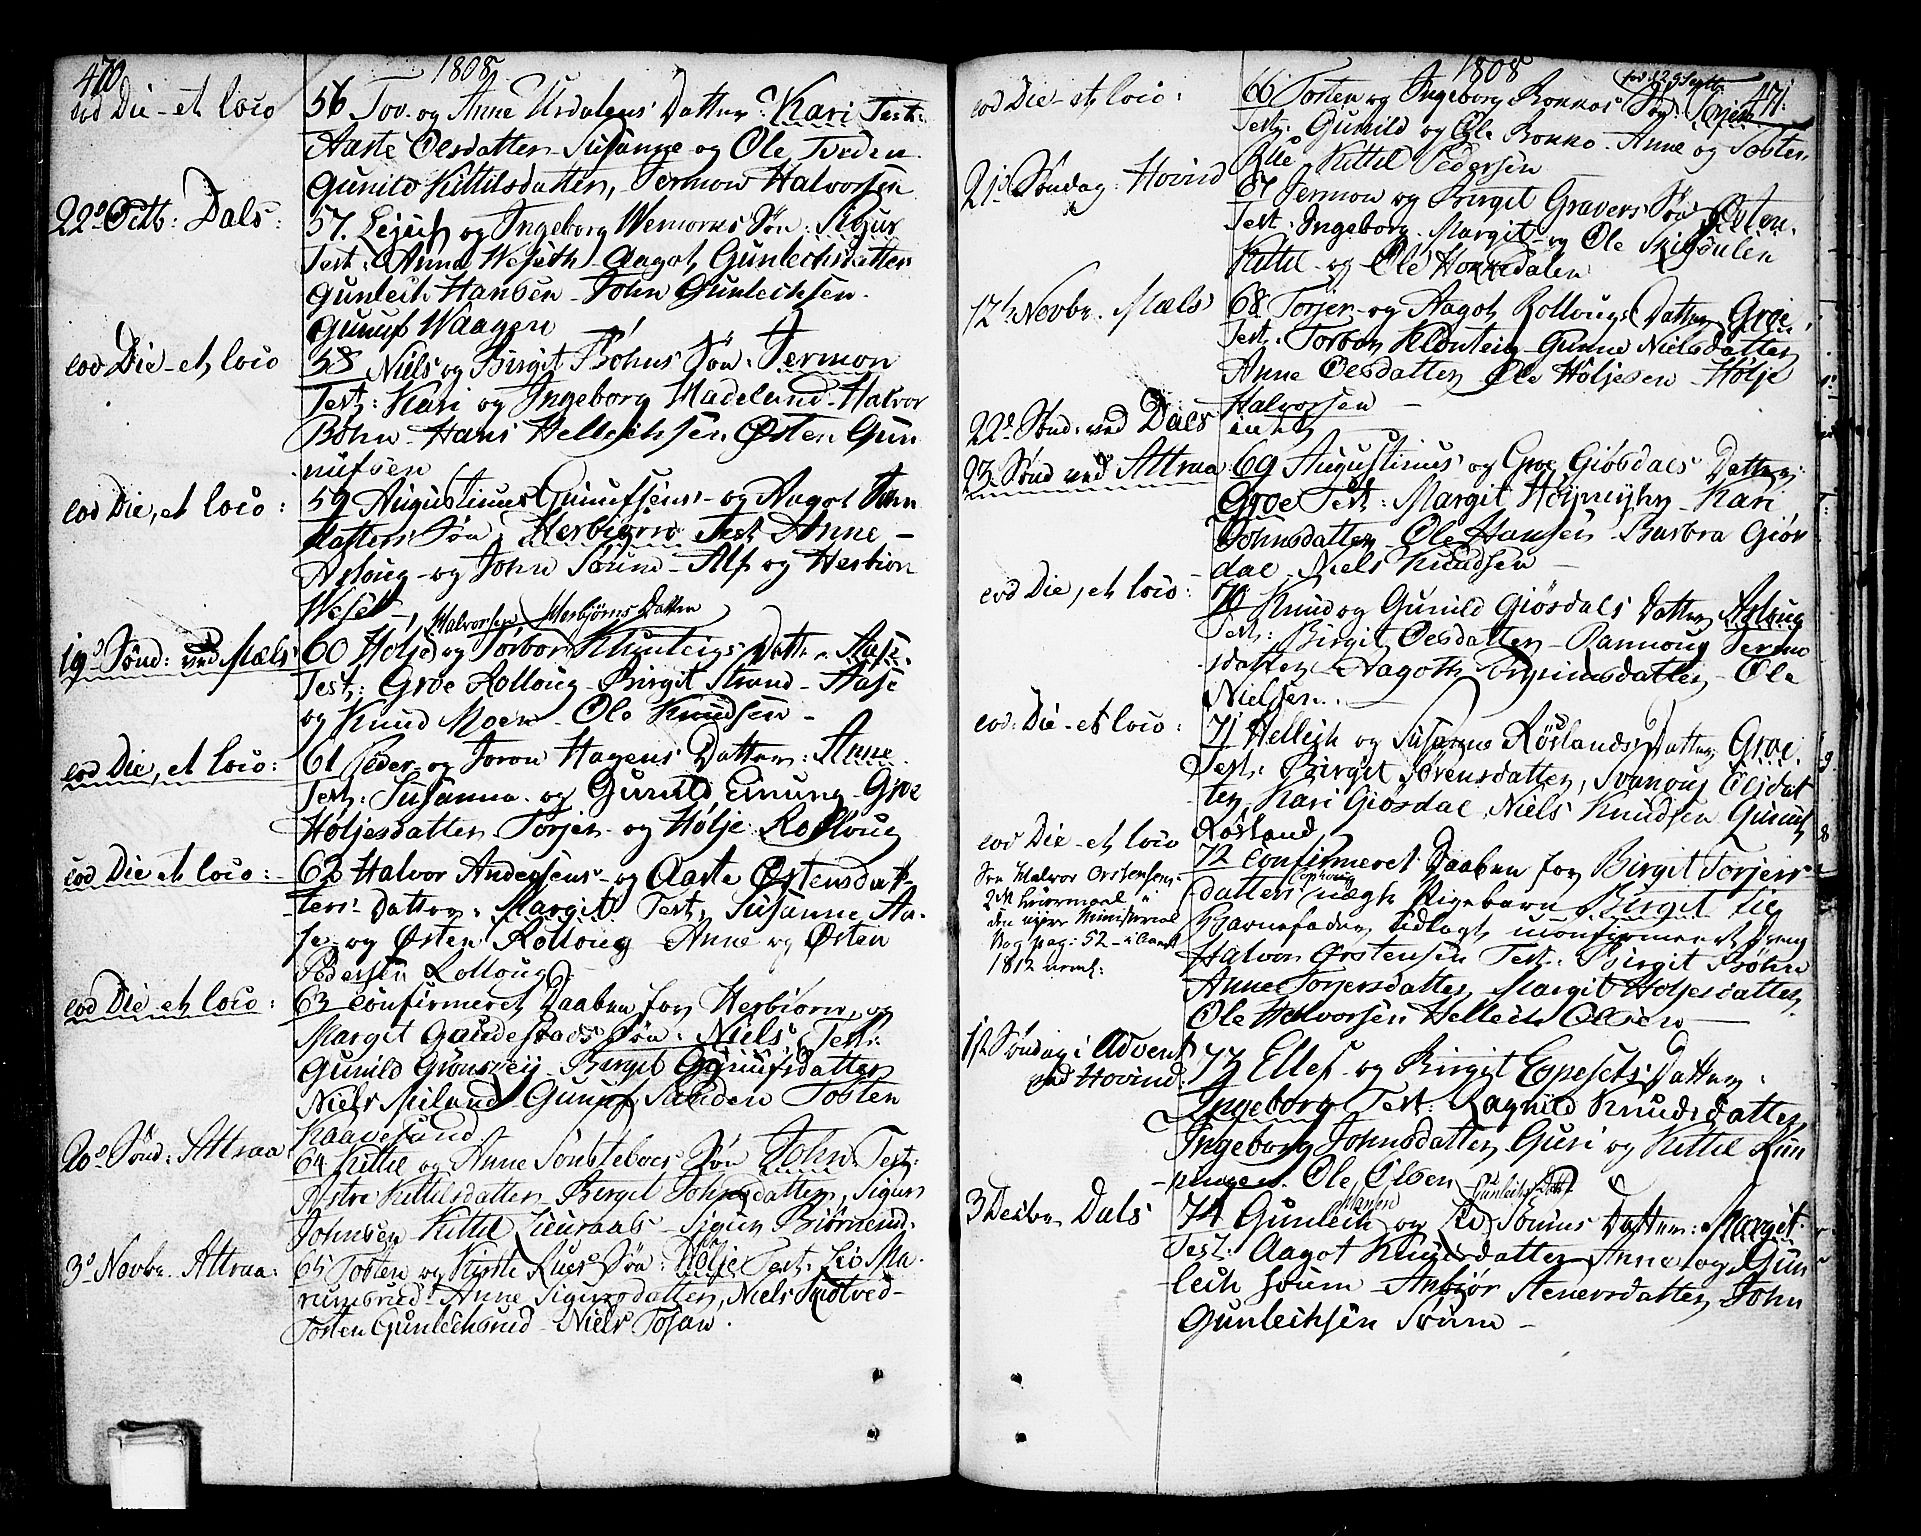 470
1808
eod Die - et loco
56 Tov og Anne Urdalens Datter: Kari Test:
Aaste Olesdatter Susanne og Ole Tveden
Gunild Kittilsdatter, Jermon Halvorsen
22d Octb: Dals:
57. Lejulf og Ingeborg Wemorks Søn: Sigur
Test: Anne Weseth Aagot Gunlechsdatter
Gunleik Hansen - John Gunleichsen.
Gunulf Waagen
eod Die - et loco
58 Niels og Birgit Bøhns Søn: Jermon
Test: Kari og Ingeborg Madeland - Halvor
Bøhn - Hans Helleichsen Østen Gun
nufsen
eod Die, et loco:
59 Augustinus Gunufsens - og Aagot
datters Søn Herbiørn Test Anne -
Asloug - og John Søum - Alf og Herbiørn
Weset -
Halvorsen Herbjørns Datter
19d Sønd: ved Mæls
60 Holje og Torbor Kluntejgs Datter Aase.
Test: Groe Rolloug - Birgit Strand - Aase
og Knud Moen - Ole Knudsen -
eod Die, et loco:
61 Peder og Joron Hagens Datter: Anne
Test: Susanna og Gunild Einung Groe
Høljesdatter Torjer og Hølje Rolloug
eod Die et loco:
62 Halvor Andersens - og Aaste Østensdat-
ters Datter: Margit Test, Susanne Aa-
se og Østen Rolloug - Anne og Østen
Pedersen Rolloug
eod Die et loco:
63 Confirmeret Daaben for Herbiørn og
Margit Gaudestads Søn: Niels. Test:
Gunild Grønsvej - Birgit Gunufsdatter
Niels Miland - Gunuf Sanden Tosten
Kaavesund
20d Sønd: Attraa
64 Kittil og Anne Sønstebøes Søn John Test:
Astre Kittilsdatter - Birgit Johnsdatter, Sigur
Johnsen - Kittil Lieuraas - Sigur Biørnerud.
3d Novbr. Attraa:
65 Tosten og Kirste Rues Søn: Holje Test: Liv Ma-
rumsrud Anne Sigursdatter, Niels Sudtved -
Tosten Gunleichsrud - Niels Tosaw.
1808
471.
eod Die - et loco:
66 Tosten og Ingeborg Bonnos Søn:
Test: Gunild og Ole Bonno. Anne og Tosten
Rue Kittil Pedersen
21d Søndag: Hovind
67 Jermon og Birgit Gravers Søn Østen.
Test: Ingeborg - Margit og Ole Skigsdalen
Kittil og Ole Hokkedalen
12t Novbr. Mæls
68. Torjer og Aagot Rollougs Datter Groe,
Test. Torbor Klonteig - Gunne Nielsdatter
Anne Olesdatter Ole Høljesen - Hølje
Halvorsen -
22d Sønd: ved Dals
intet
23. Sønd ved Attraa
69 Augustinus og Groe Giøsdals Datter:
Groe Test: Margit Høimyhr Kari
Johnsdatter Ole Hansen - Barbra Giøs
dal. Niels Knudsen -
eod Die, et loco:
70 Knud og Gunild Giøsdals Datter Asloug
Test: Birgit Olesdatter - Rannoug Jermo
sdatter Aagoth datter - Ole
Nielsen.
eod: Die - et loco:
71 Helleik og Susanne Røslands Datter Groe
Test: Birgit Sørensdatter, Svanoug Olsdat
ter, Kari Giøsdal Niels Knudsen Gunuf
Røsland
eod Die - et loco
72 Confirmeret Daaben for Birgit Torjers
datters uægte Pigebarn Birgit Lie
Barnefader udlagt uconfirmeret Dreng
Halvor Ørstensen Test: Birgit Bøhn
Anne Torjersdatter, Margit Holjesdatter
Ole Halvorsen Helleik Olsen -
See Halvor Orstensens
2det Leiermaal i
den nyere Ministerial
Bog pag: 52 -
1812
1st Søndag i Advent
ved Hovind.
73 Ellef og Birgit Egsets Datter:
Ingeborg Test: Ragnild Knudsdatter,
Ingeborg Johnsdatter, Guri og Kittil Run
ningen. Ole Olsen
Hansen
3 Decbr Dals
74 Gunleik og Liv Sønns Datter: Margit
Test: Aagot Knudsdatter Anne og Gun
leik Søum - Anbjør Stenersdatter John
Gunleichsen Søum -